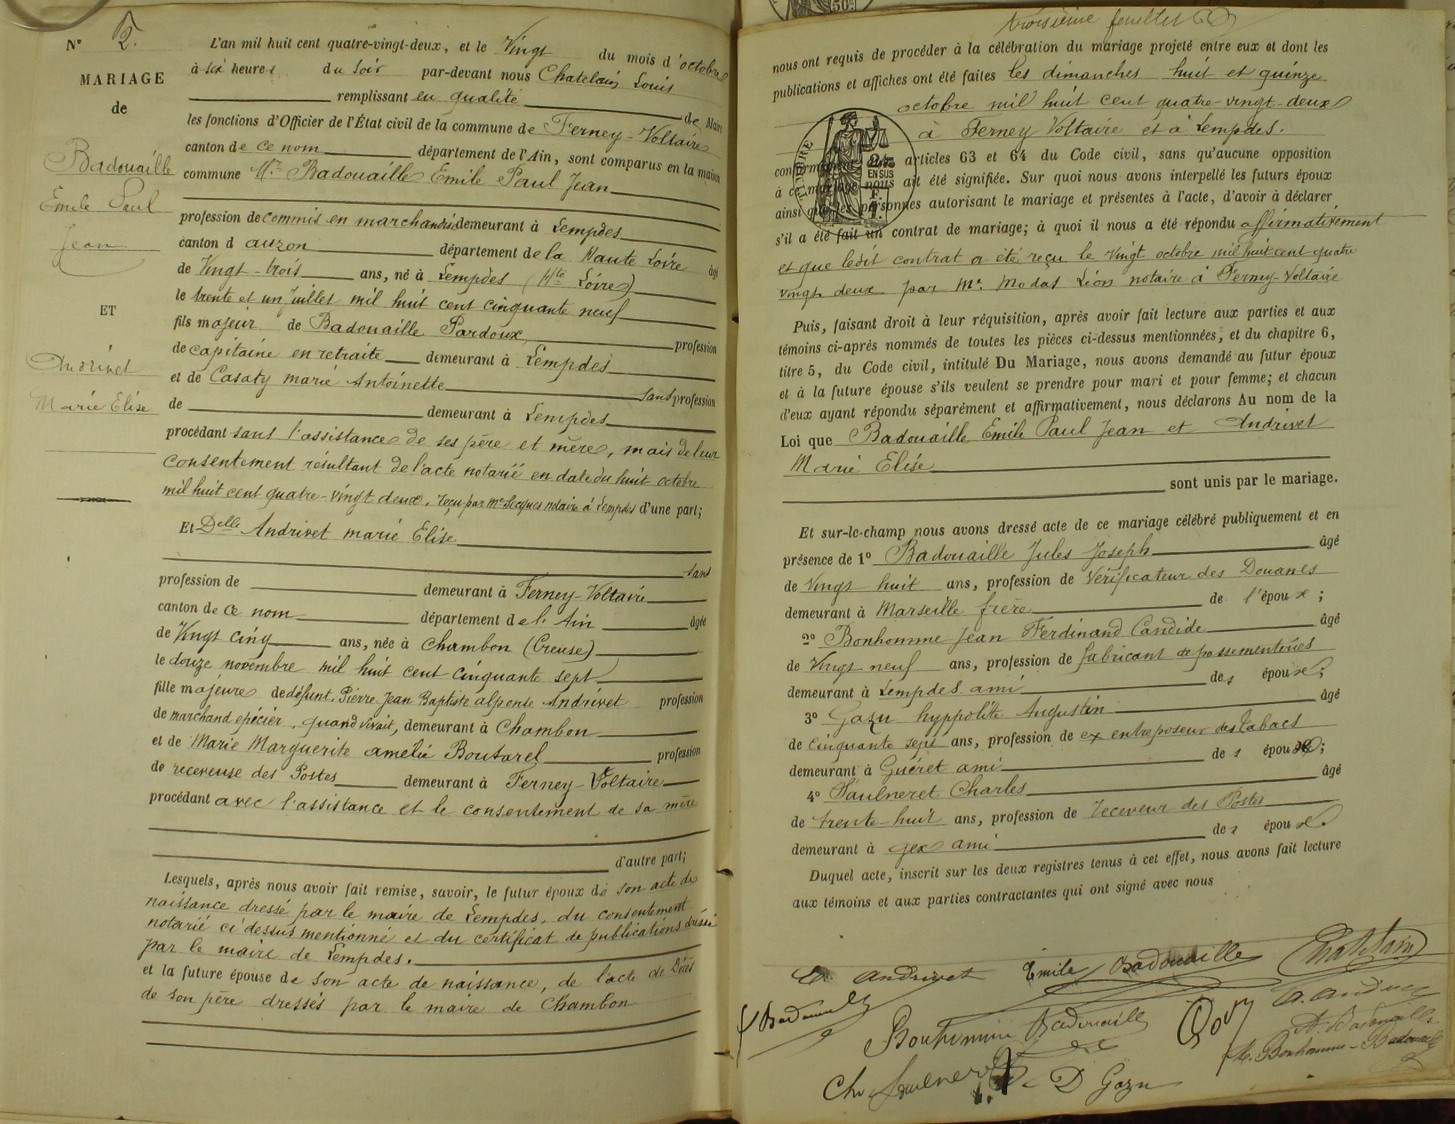 N° 12.
MARIAGE
de
Badouaille
Emile Paul
Jean
ET
Andrivet
Marie Elise
L'an mil huit cent quatre-vingt-deux, et le Vingt du mois d'octobre
à six heures du soir par-devant nous Chatelain Louis
remplissant en qualité de Maire
les fonctions d'Officier de l'État civil de la commune de Ferney-Voltaire
canton de ce nom département de l'Ain, sont comparus en la maison
commune Mr Badouaille Emile Paul Jean
profession de commis en marchandises demeurant à Lempdes
canton d auzon département de la Haute Loire âgé
de Vingt-trois ans, né à Lempdes (Hte Loire)
le trente et un juillet mil huit cent cinquante neuf
fils majeur de Badouaille Pardoux, profession
de capitaine en retraite demeurant à Lempdes
et de Casaty marie Antoinette sans profession
de demeurant à Lempdes
procédant sans l'assistance de ses père et mère, mais de leur
consentement résultant de l'acte notarié en date du huit octobre
mil huit cent quatre-vingt deux, reçu par Me Lecques notaire à Lempdes d'une part;
Et Delle Andrivet marie Elise
sans
profession de demeurant à Ferney-Voltaire
canton de ce nom département de l'Ain âgée
de Vingt cinq ans, née à Chambon (Creuse)
le douze novembre mil huit cent cinquante sept
fille majeure de défunt Pierre Jean Baptiste alpente Andrivet profession
de marchand epicier, quand vivait, demeurant à Chambon
et de Marie Marguerite amelie Boutarel profession
de receveuse des Postes demeurant à Ferney-Voltaire
procédant avec l'assistance et le consentement de sa mère
d'autre part;
Lesquels, après nous avoir fait remise, savoir, le futur époux de son acte de
naissance dressé par le maire de Lempdes, du consentement
notarié ci dessus mentionné et du certificat de publications dressé
par le maire de Lempdes.
et la future épouse de son acte de naissance, de l'acte de Décès
de son père dressés par le maire de Chambon
troisième feuillet
nous ont requis de procéder à la célébration du mariage projeté entre eux et dont les
publications et affiches ont été faites les dimanches huit et quinze
octobre mil huit cent quatre-vingt-deux
à Ferney Voltaire et à Lempdes.
conformément aux articles 63 et 64 du Code civil, sans qu'aucune opposition
à ce mariage nous ait été signifiée. Sur quoi nous avons interpellé les futurs époux
ainsi que les personnes autorisant le mariage et présentes à l'acte, d'avoir à déclarer
s'il a été fait un contrat de mariage; à quoi il nous a été répondu affirmativement
et que ledit contrat a été reçu le vingt octobre mil huit cent quatre
vingt deux par Me Modas Léon notaire à Ferney-Voltaire
TIMBRE
EN SUS
Puis, faisant droit à leur réquisition, après avoir fait lecture aux parties et aux
témoins ci-après nommés de toutes les pièces ci-dessus mentionnées, et du chapitre 6,
titre 5, du Code civil, intitulé Du Mariage, nous avons demandé au futur époux
et à la future épouse s'ils veulent se prendre pour mari et pour femme; et chacun
d'eux ayant répondu séparément et affirmativement, nous déclarons Au nom de la
Loi que Badouaille Emile Paul Jean et Andrivet
Marie Elise
sont unis par le mariage.
Et sur-le-champ nous avons dressé acte de ce mariage célébré publiquement et en
présence de 1° Badouaille Jules Joseph âgé
de Vingt huit ans, profession de Vérificateur des Douanes
demeurant à Marseille frère de l'époux;
2° Bonhomme Jean Ferdinand Candide âgé
de Vingt neuf ans, profession de fabricant de passementeries
demeurant à Lempdes ami des époux;
3° Gazu hyppolite Augustin âgé
de cinquante sept ans, profession de ex entreposeur des tabacs
demeurant à Guéret ami des époux;
4° Saulneret Charles âgé
de trente-huit ans, profession de receveur des Postes
demeurant à gex ami des époux.
Duquel acte, inscrit sur les deux registres tenus à cet effet, nous avons fait lecture
aux témoins et aux parties contractantes qui ont signé avec nous
E. Andrivet Emile Badouaille Chatelain
Bonhomme Badouaille
M. Bonhomme-Badouaille
Ch. Saulneret D Gazu